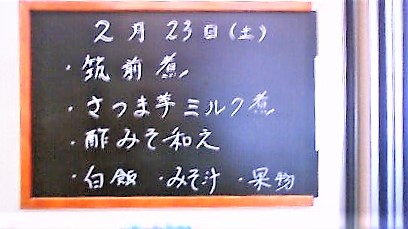 2月23日(土)
・筑前煮
・さつま芋ミルク煮
・酢みそ和え
・白飯 ・みそ汁 ・果物